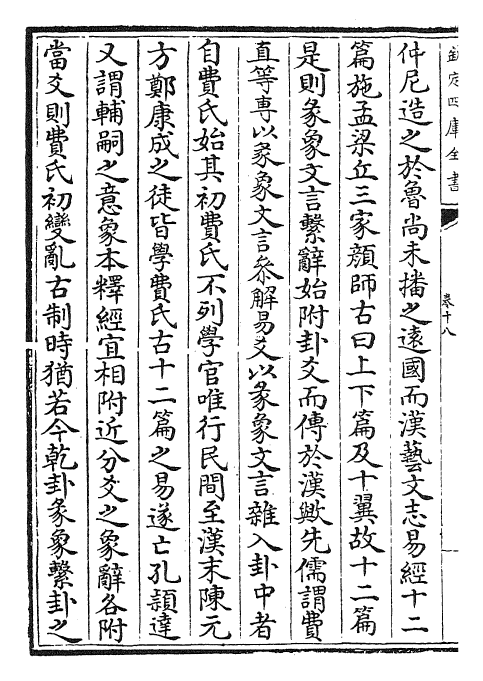 欽定四庫全書
卷十八
仲尼造之於魯尚未播之遠國而漢藝文志易經十二
篇施孟梁丘三家顔師古曰上下篇及十翼故十二篇
是則彖象文言繫辭始附卦爻而傳於漢歟先儒謂費
直等専以彖象文言叅解易爻以彖象文言雜入卦中者
自費氏始其初費氏不列學官唯行民間至漢末陳元
方鄭康成之徒皆學費氏古十二篇之易遂亡孔頴達
又謂輔嗣之意象本釋經宜相附近分爻之象辭各附
當爻則費氏初變亂古制時猶若今乾卦彖象繫卦之